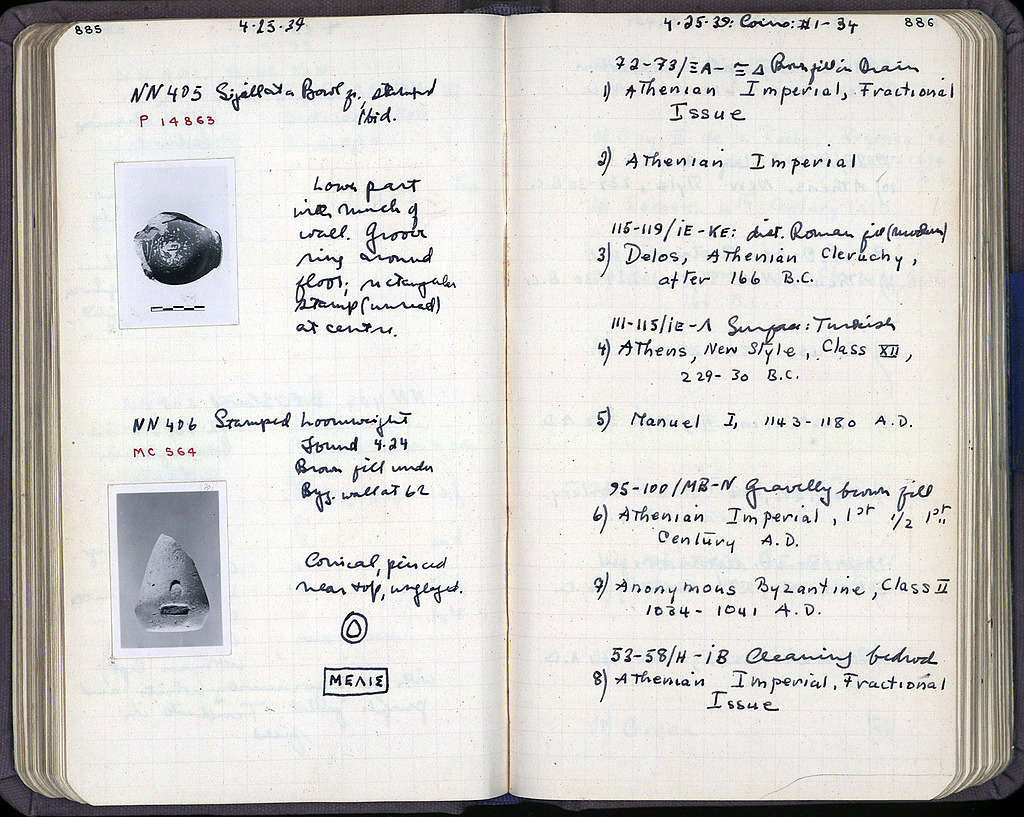 885
4-25-39
NN 405 Sigillata Bowl fr., stamped
P 14863
Ibid.
Lower part
with much of
wall. Groove
ring around
floor; rectangular
stamp (unread)
at centre.
NN 406 Stamped Loomweight
MC 564
Found 4-24
Brown fill under
Byz. wall at 62
Conical, pierced
near top, unglazed.
ΜΕΛΙΣ
4-25-39: Coins: #1-34
886
72-73/ΞΑ- Brown fill in Drain
1) Athenian Imperial, Fractional
Issue
2) Athenian Imperial
115-119/ΙΕ-ΚΕ: dist. Roman fill (modern)
3) Delos, Athenian Cleruchy,
after 166 B.C.
111-115/ΙΕ-Λ Surface: Turkish
4) Athens, New Style, Class XII,
229-30 B.C.
5) Manuel I, 1143-1180 A.D.
95-100/ΜΒ-Ν Gravelly brown fill
6) Athenian Imperial, 1st 1/2 1st
Century A.D.
7) Anonymous Byzantine, Class II
1034-1041 A.D.
53-58/Η-ΙΒ Cleaning bedrock
8) Athenian Imperial, Fractional
Issue